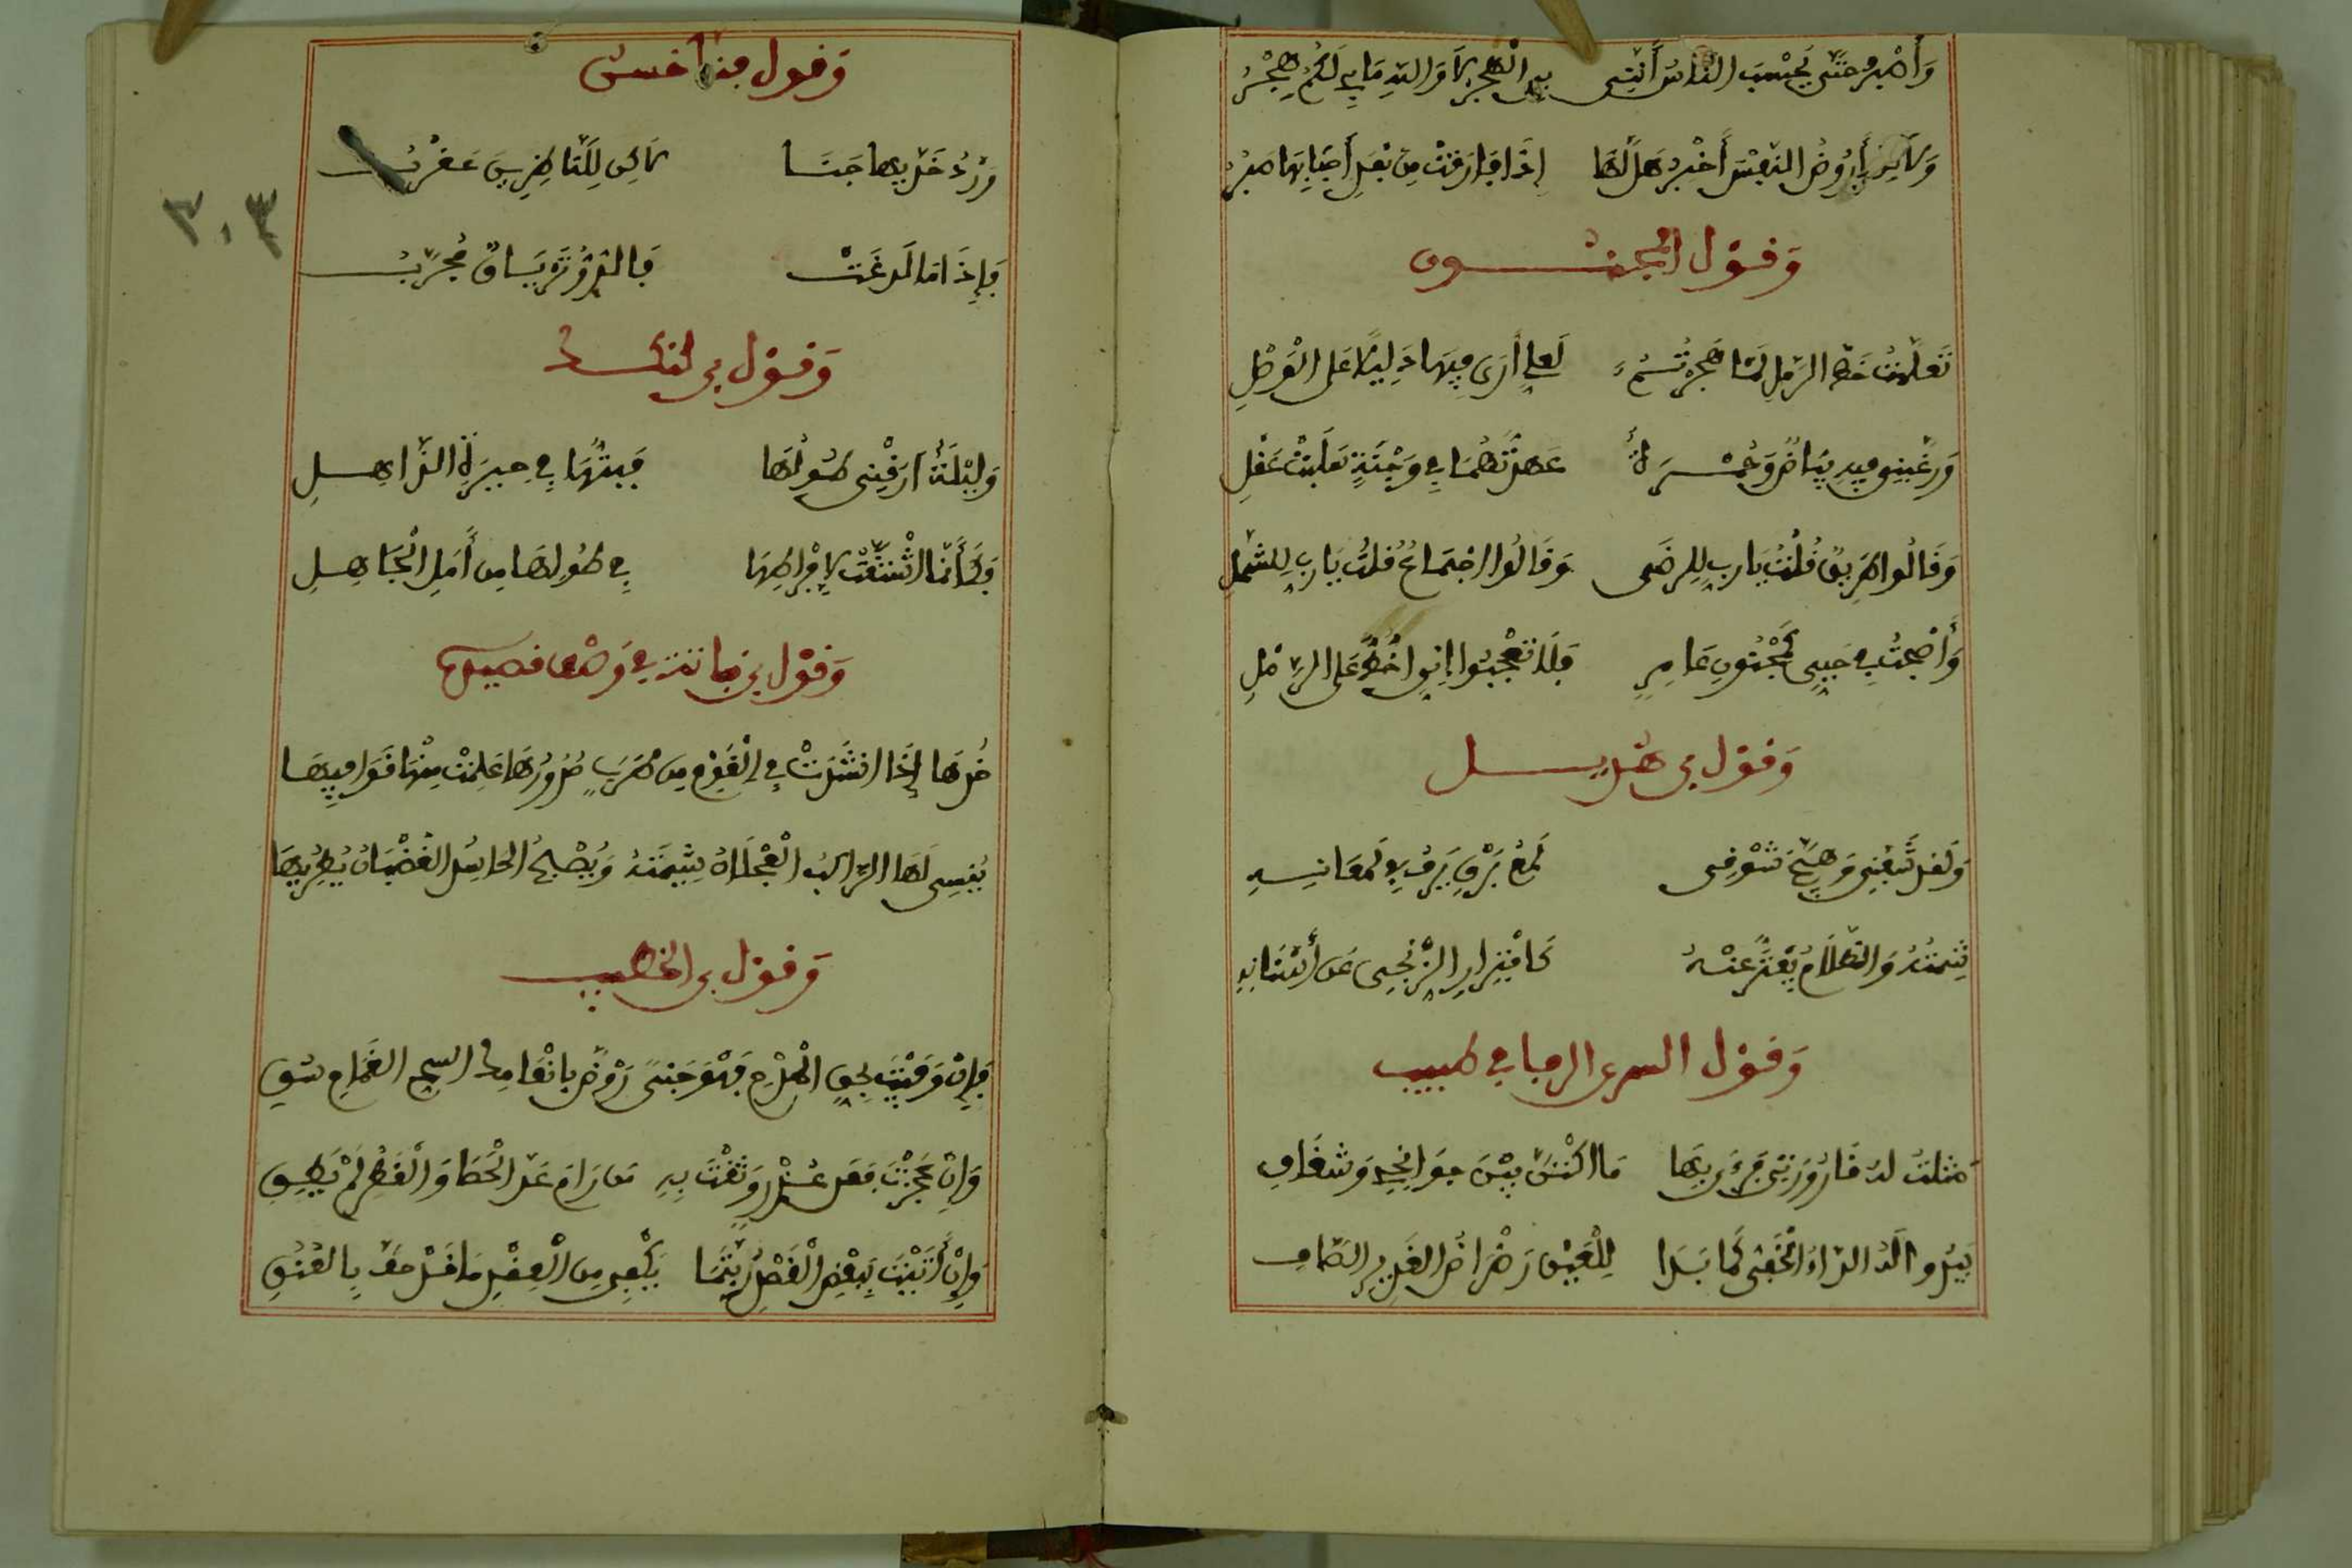 وَأَهْجُرُ حَتَّى يَحْسِبَ النَّاسُ أَنَّنِي بِيَ الْهَجْرُ لَا وَاللَّهِ مَا بِي لَكُمْ هَجْرُ
وَلَكِنْ أَرُوضُ النَّفْسَ أَخْبُرُ هَلْ لَهَا إِذَا فَارَقَتْ مِنْ بَعْدِ أَحْبَابِهَا صَبْرُ
وَقَوْل المجنون
تَعَلَّمْتُ خَطَّ الرَّمْلِ لَمَّا هَجَرْتُمُ لَعَلِّي أَرَى فِيهَا دَلِيلًا عَلَى الْوَصْلِ
وَرَغَّبَنِي فِيهِ بَيَاضٌ وَحُمْرَةٌ عَهِدْتُهُمَا فِي وَجْنَةٍ سَلَبَتْ عَقْلِي
وَقَالُوا طَرِيقٌ قُلْتُ يَارَبِّ لِلرِّضَى وَقَالُوا اجْتِمَاعٌ قُلْتُ يَارَبِّ لِلشَّمْلِ
وَأَصْبَحْتُ فِي حُبِّي كَمَجْنُونِ عَامِرٍ فَلَا تَعْجَبُوا إِنِّي أَخُطُّ عَلَى الرَّمْلِ
وَقَوْل بن هذيل
وَلَقَدْ شَفَّنِي وَهَيَّجَ شَوْقِي لَمْعُ بَرْقٍ يَرِفُّ فِي لَمَعَانِهِ
شِمْتُهُ وَالظَّلَامُ يَفْتَرُّ عَنْهُ كَافْتِرَارِ الزَّنْجِيِّ عَنْ أَسْنَانِهِ
وَقَوْل السري الرفا في طبيب
مَثَلَتْ لَهُ قَارُورَتِي فَرَأَى بِهَا مَا اكْتَنَّ بَيْنَ جَوَانِحِي وَشَغَافِي
يَبْدُو لَهُ الدَّاءُ الْخَفِيُّ كَمَا بَدَا لِلْعَيْنِ رَضْرَاضُ الغَدِيرِ الصَّافِي
وَقول
وَرْدُ خَدَّيْهَا جَنًا لَاكِنْ لِلنَّاظِرِينَ عَقْرَبُ
فَإِذَا مَا لَدَغَتْ فَالتِّرْيَاقُ مُجَرَّبُ
وَقَوْل بن
وَلَيْلَةٌ أَرَّقَنِي طُولُهَا فَبِتُّهَا فِي حَيْرَةِ الذَّاهِلِ
فَكَأَنَّمَا اشْتُقَّتْ لِإِفْرَاطِهَا فِي طُولِهَا مِنْ أَمَلِ الْجَاهِلِ
وَقَوْل بن نباتة في وصف قصيدة
خُذْهَا إِذَا انْشَدَتْ فِي الْقَوْمِ مِنْ طَرَبٍ صُدُورُهَا عُلِمَتْ مِنْهَا قَوَافِيهَا
يُنْسِي لَهَا الرَّاكِبُ الْعَجْلَانُ شِيمَتَهُ وَيُصْبِحُ الحَاسِدُ الغَضْبَانُ يُطْرِيهَا
وَقول بن الخطيب
فَإِنْ وَفَيْتُ بِحَقِّ الْمَدْحِ فَهْوَ جَنَى رَوْضٍ الغَمَامِ سُقِي
وَإِنْ عَجَزْتُ فَعَنْ عُذْرٍ وَثِقْتُ بِهِ مَنْ رَامَ عَدَّ الْحَصَا وَالْقَطْرِ لَمْ يُطِقِ
وَإِنْ أَتَيْتُ بِبَعْضِ الْقَصْدِ رُبَّمَا يَكْفِي مِنَ الْعِقْدِ مَا قَدْ حَفَّ بِالْعُنُقِ
٣٠٣